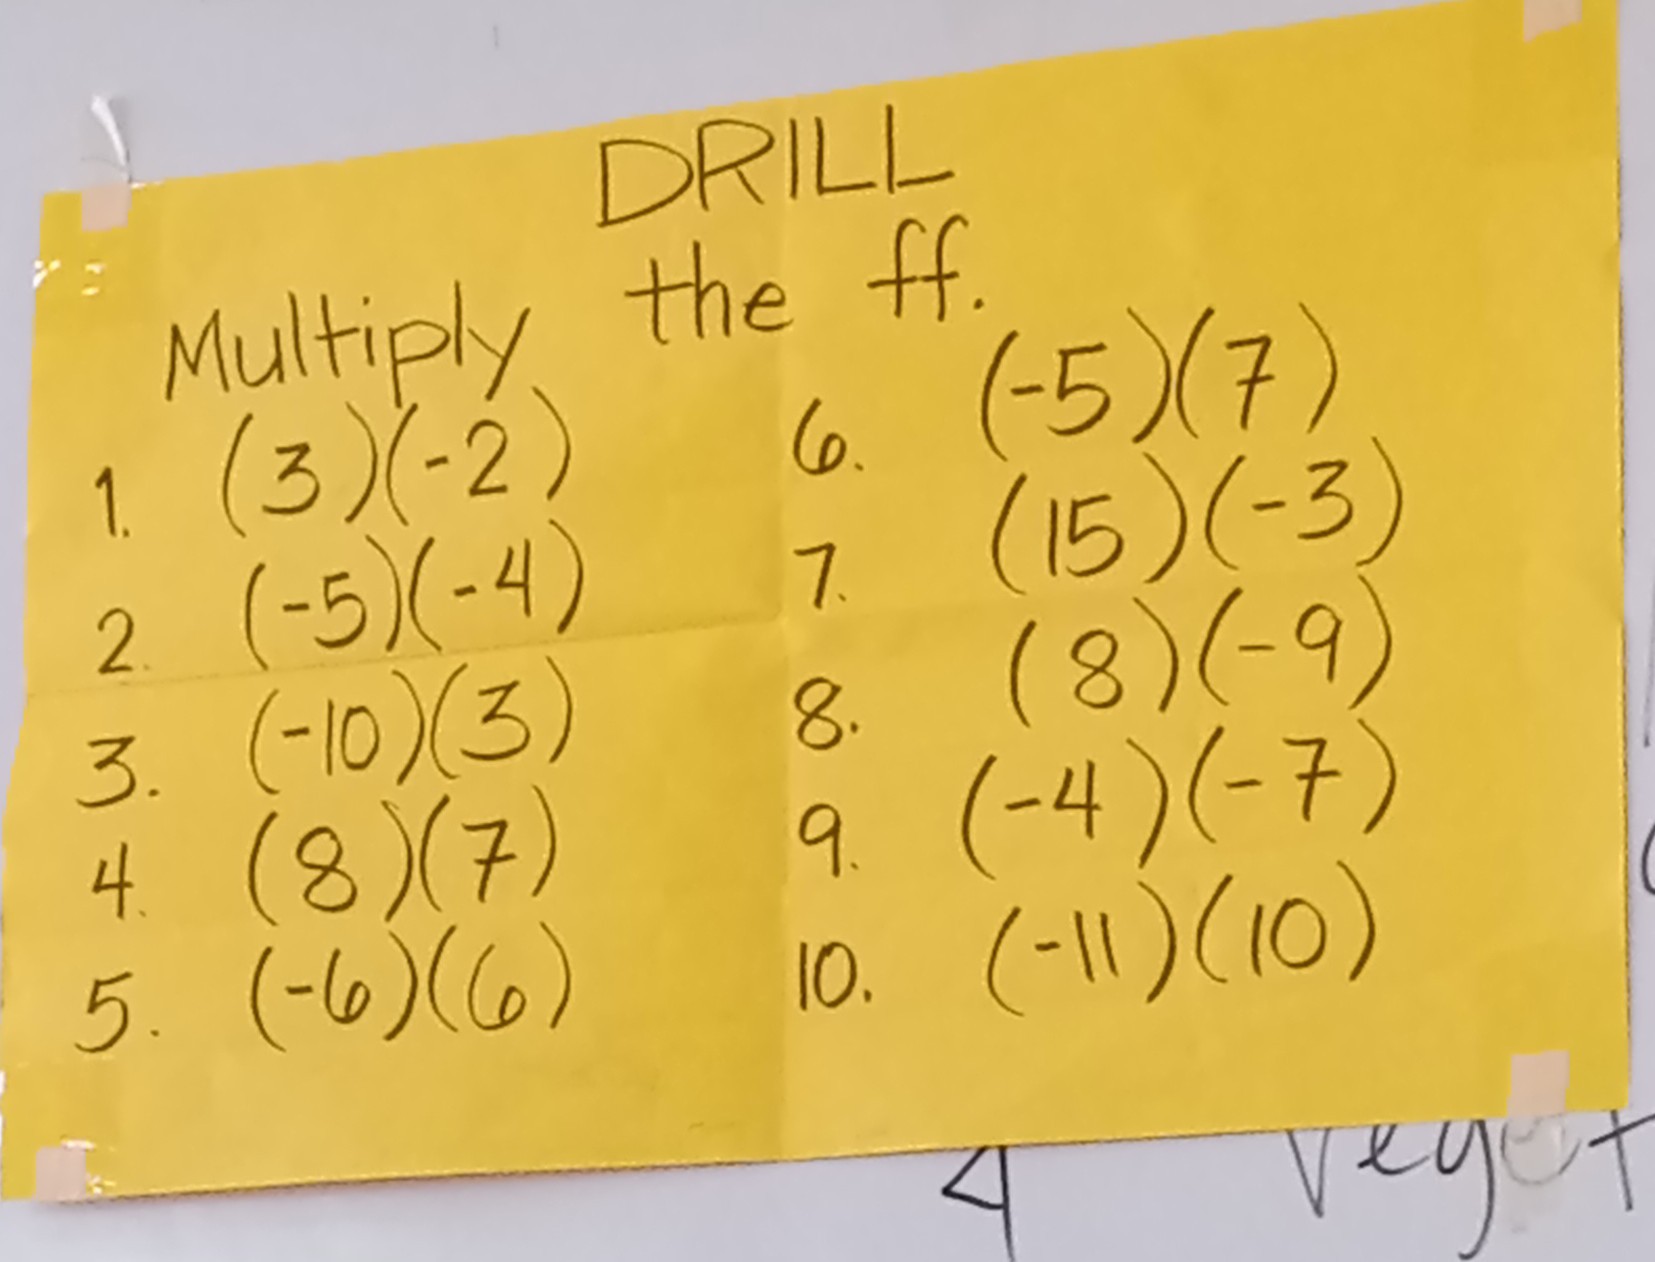 DRILL
Multiply the ff.
1. (3)(-2)
2. (-5)(-4)
3. (-10)(3)
4. (8)(7)
5. (-6)(6)
6. (-5)(7)
7. (15)(-3)
8. (8)(-9)
9. (-4)(-7)
10. (-11)(10)